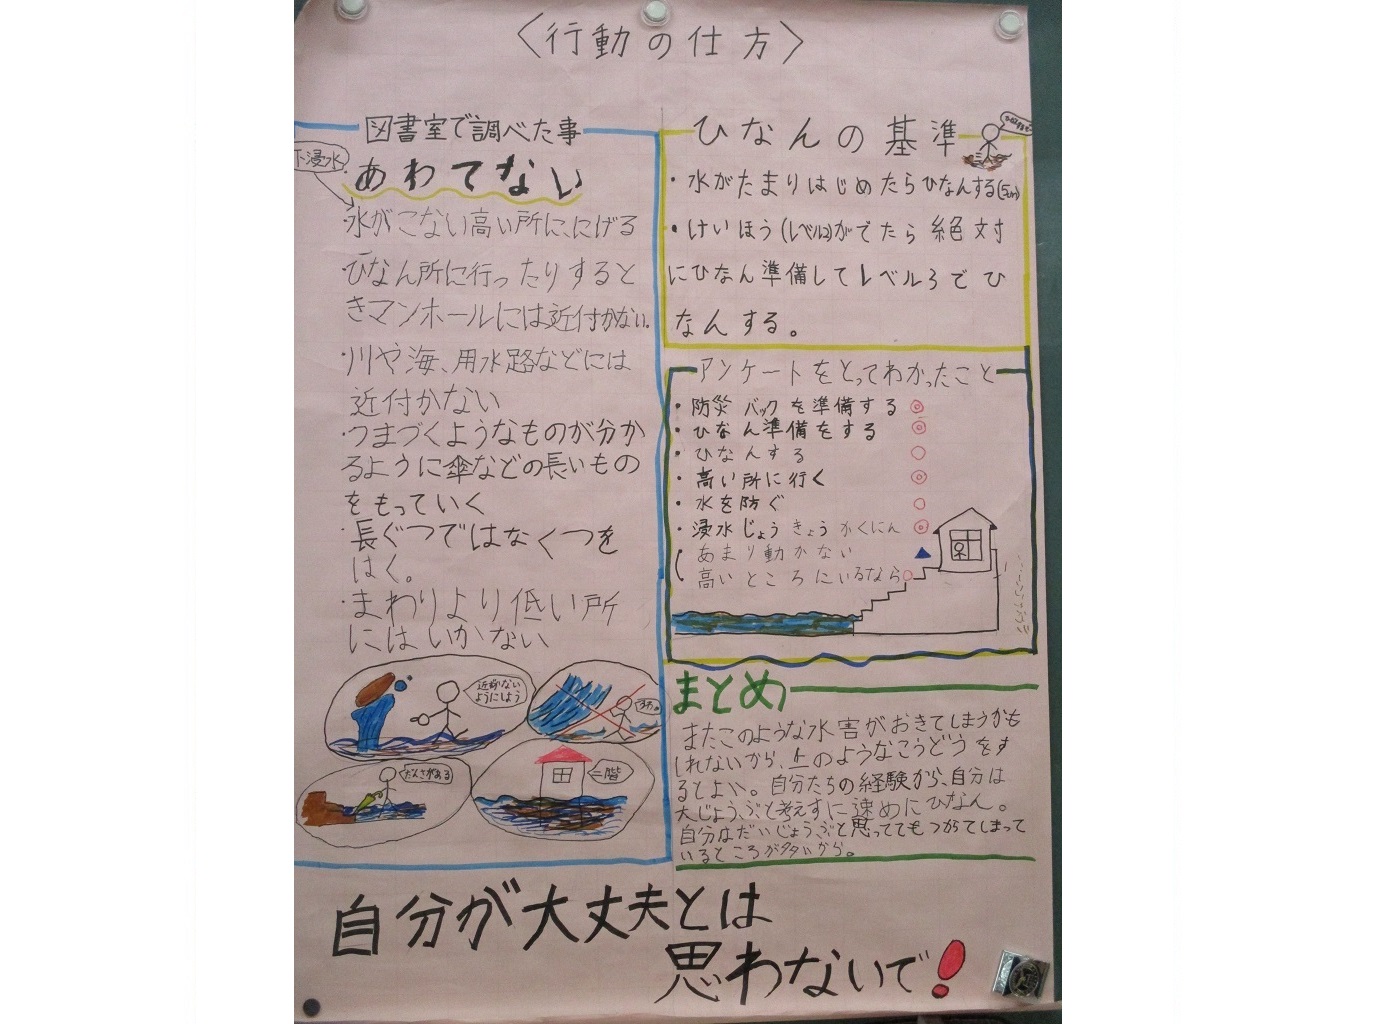 〈行動の仕方〉
図書室で調べた事
下浸水
・あわてない
・水がこない高い所に、にげる
・ひなん所に行ったりすると
きマンホールには近付かない。
・川や海、用水路などには
近付かない
・つまづくようなものが分か
るように傘などの長いもの
をもっていく
・長ぐつではなくつを
はく。
・まわりより低い所
にはいかない
近寄ない
ようにしよう
だんさがある
二階
ひなんの基準
・水がたまりはじめたらひなんする(5cm)
・けいほう(レベル2)がでたら絶対
にひなん準備してレベル3でひ
なんする。
アンケートをとってわかったこと
・防災バックを準備する ◎
・ひなん準備をする ◎
・ひなんする ○
・高い所に行く ◎
・水を防ぐ ○
・浸水じょうきょうかくにん ◎
(あまり動かない ▲
高いところにいるなら○
まとめ
またこのような水害がおきてしまうかも
しれないから、上のようなこうどうをす
るとよい。自分たちの経験から、自分は
大じょうぶと考えずに速めにひなん。
自分はだいじょうぶと思っててもつかてしまって
いるところが多いから。
自分が大丈夫とは
思わないで!